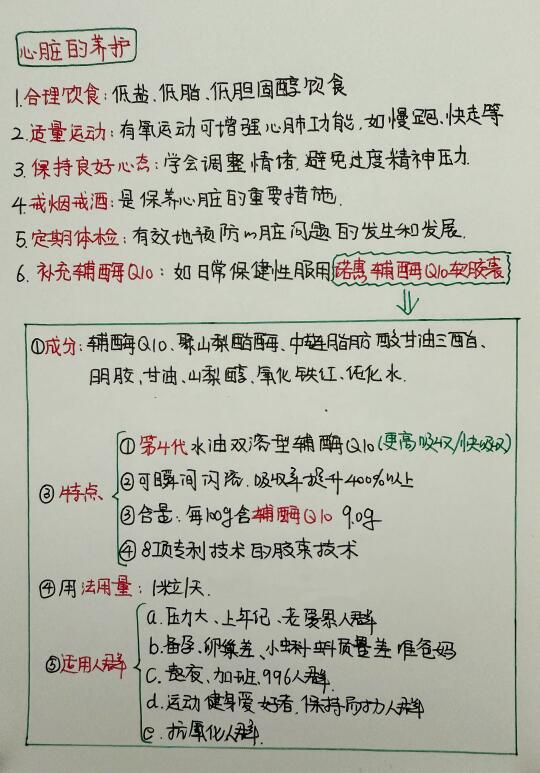 心脏的养护
1.合理饮食：低盐、低脂、低胆固醇饮食
2.适量运动：有氧运动可增强心肺功能，如慢跑、快走等
3.保持良好心态：学会调整情绪，避免过度精神压力.
4.戒烟戒酒：是保养心脏的重要措施.
5.定期体检：有效地预防心脏问题的发生和发展.
6.补充辅酶Q10：如日常保健性服用诺惠辅酶Q10软胶囊
①成分：辅酶Q10、聚山梨酯酶、中链脂肪酸甘油三酯、
明胶、甘油、山梨醇、氧化铁红、纯化水.
③特点
①第4代水油双溶型辅酶Q10(更高吸收/快吸收)
②可瞬间闪溶.吸收率提升400%以上
③含量：每100g含辅酶Q10 9.0g
④8项专利技术的胶束技术
④用法用量：1粒/天.
⑤适用人群
a.压力大、上年纪、老婴累人群
b.备孕、卵巢差、小蝌蚪质量差准爸妈
c.熬夜、加班、996人群.
d.运动健身爱好者，保持耐力人群
e.抗氧化人群.